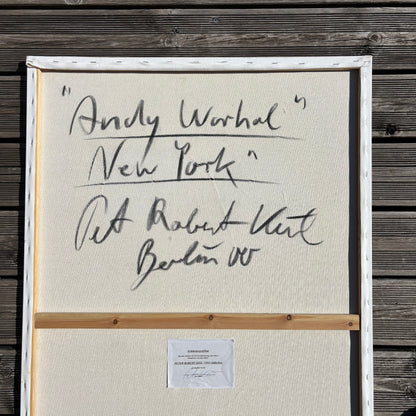 "Andy Warhol"
New York"
Pet Robert Keil
Berlin 00